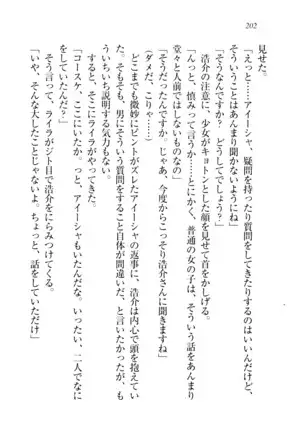 202
見せた。
「えっと……アイーシャ、疑問を持ったり質問をしてきたりするのはいいんだけど、
そういうことはあんまり聞かないようにね」
「そうなんですか？　どうしてでしょう？」
浩介の注意に、少女がキョトンとした顔を見せて首をかしげる。
「んっと、慎みって言うか……とにかく、普通の女の子は、そういう話をあんまり
堂々と人前でしないものなの」
「そうだったんですか。じゃあ、今度からこっそり浩介さんに聞きますね」
（ダメだ、こりゃ……）
どこまでも微妙にピントがズレたアイーシャの返事に、浩介は内心で頭を抱えてい
た。そもそも、男にそういう質問をすること自体が間違いだ、と言いたかったが、も
ういちいち説明する気力もない。
すると、そこにライラがやってきた。
「コースケ、ここにいたか。っと、アイーシャもいたんだな。いったい、二人でなに
をしていたんだ？」
そう言って、ライラがジト目で浩介をにらみつけてくる。
「いや、そんな大したことじゃないよ。ちょっと、話をしていただけ」